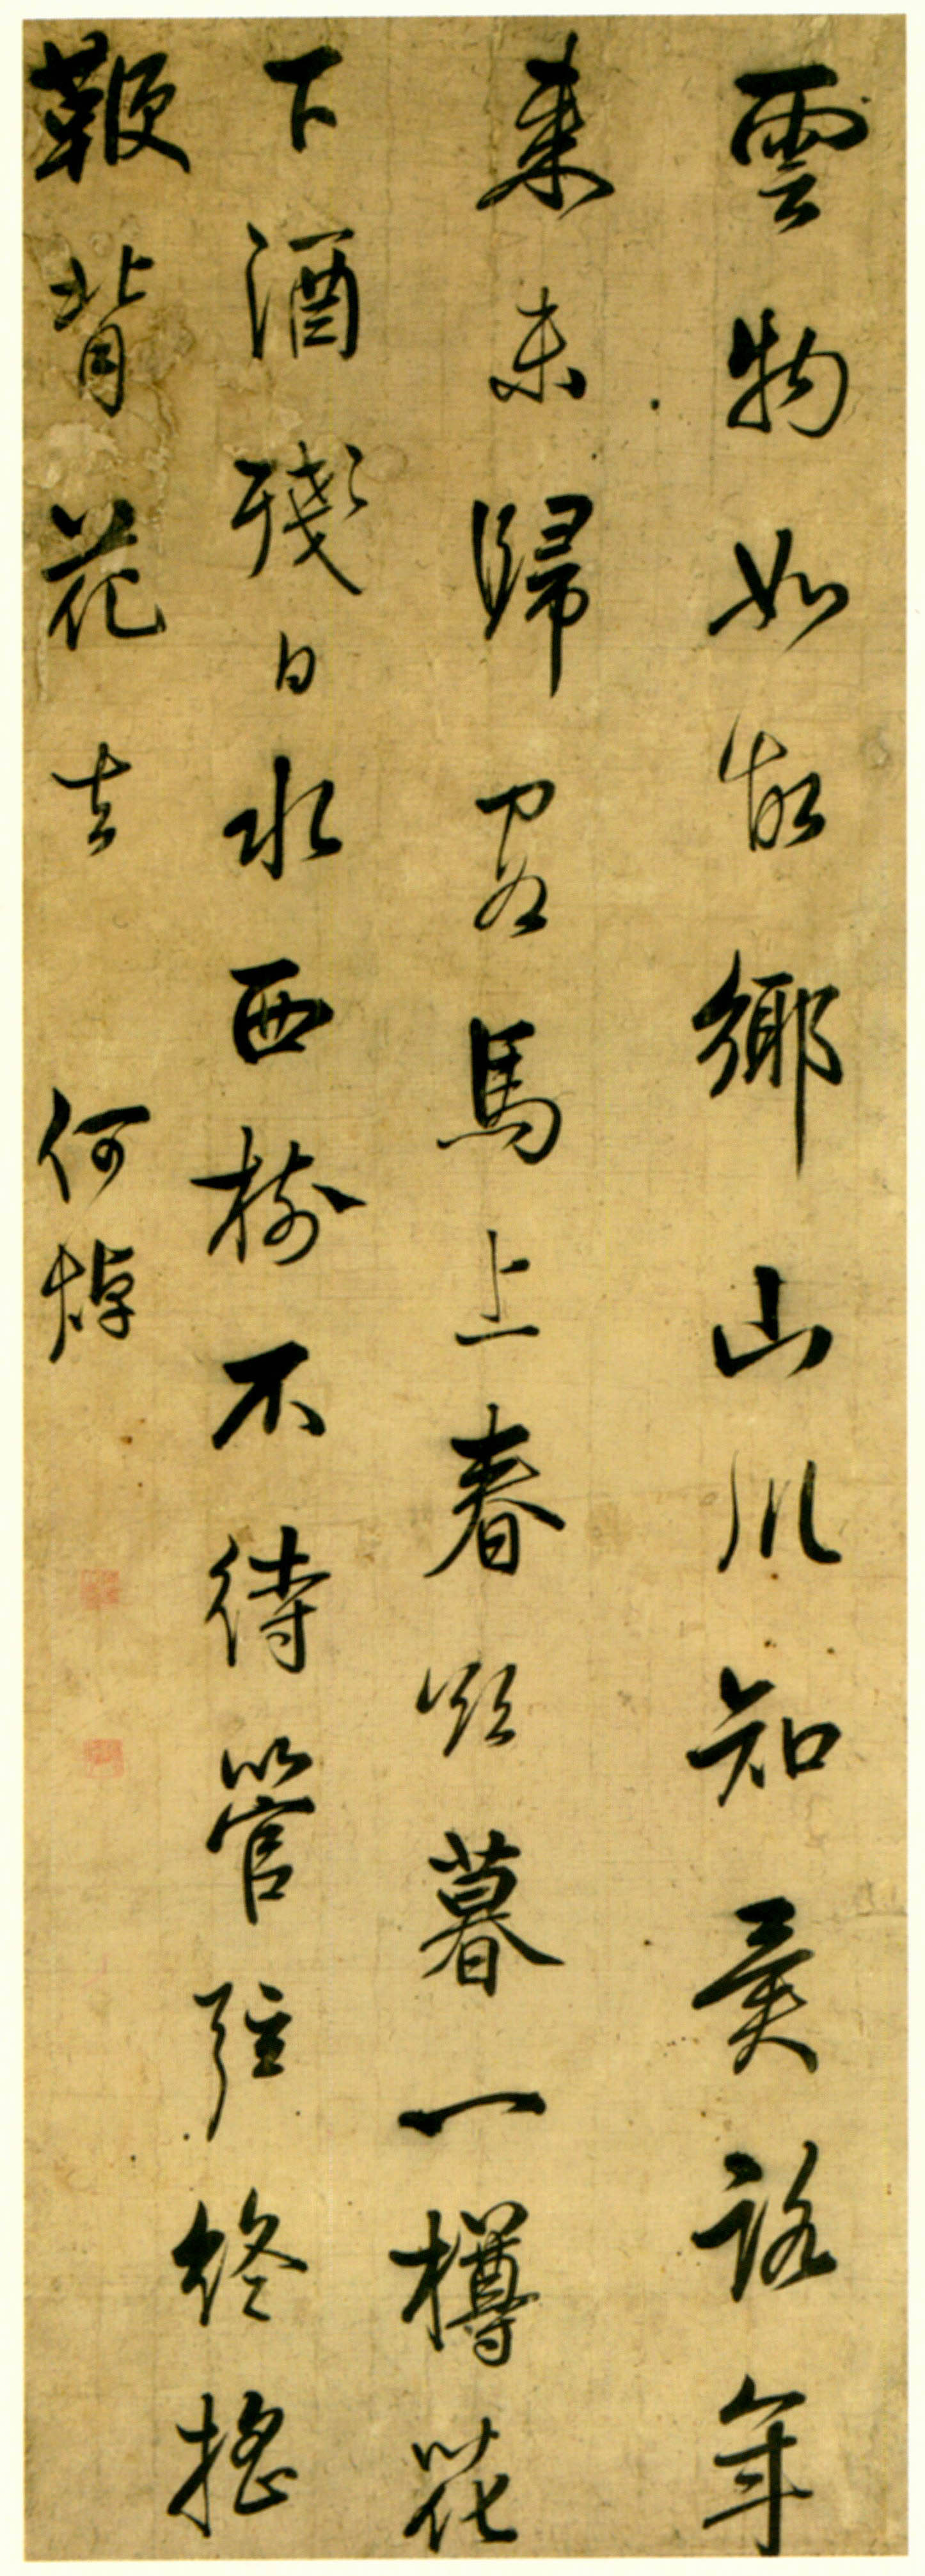 雲物如故鄉山川知異路年
來未歸客馬上春欲暮一樽花
下酒殘日水西樹不待管弦終搖
鞭背花去
何焯